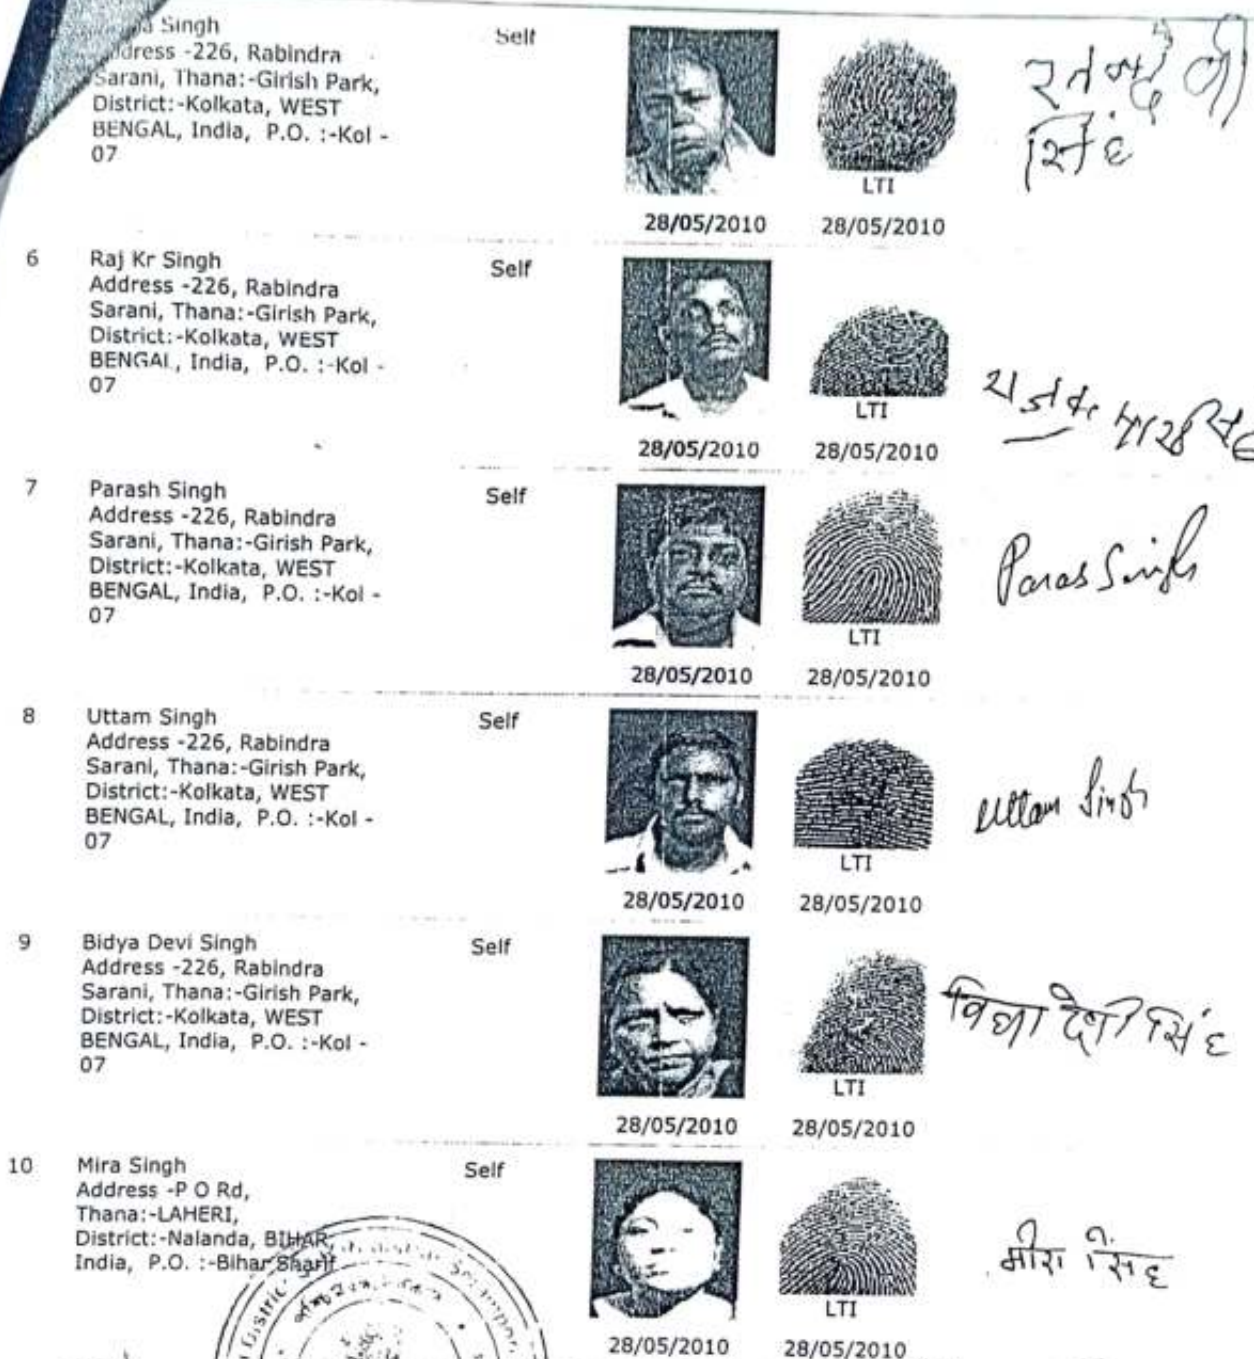 Singh
Address -226, Rabindra
Sarani, Thana:-Girish Park,
District:-Kolkata, WEST
BENGAL, India, P.O. :-Kol -
07
Self
LTI
28/05/2010 28/05/2010
सिंह
6 Raj Kr Singh
Address -226, Rabindra
Sarani, Thana:-Girish Park,
District:-Kolkata, WEST
BENGAL, India, P.O. :-Kol -
07
Self
LTI
28/05/2010 28/05/2010
7 Parash Singh
Address -226, Rabindra
Sarani, Thana:-Girish Park,
District:-Kolkata, WEST
BENGAL, India, P.O. :-Kol -
07
Self
LTI
28/05/2010 28/05/2010
Paras Singh
8 Uttam Singh
Address -226, Rabindra
Sarani, Thana:-Girish Park,
District:-Kolkata, WEST
BENGAL, India, P.O. :-Kol -
07
Self
LTI
28/05/2010 28/05/2010
Uttam Singh
9 Bidya Devi Singh
Address -226, Rabindra
Sarani, Thana:-Girish Park,
District:-Kolkata, WEST
BENGAL, India, P.O. :-Kol -
07
Self
LTI
28/05/2010 28/05/2010
विद्या देवी सिंह
10 Mira Singh
Address -P O Rd,
Thana:-LAHERI,
District:-Nalanda, BIHAR,
India, P.O. :-Bihar Sharif
Self
LTI
28/05/2010 28/05/2010
मीरा सिंह